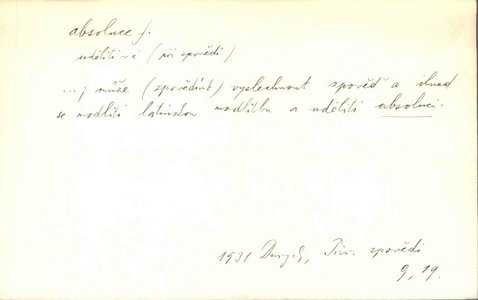 absoluce f.
uděliti - i (při zpovědi)
...; může (zpovědník) vyslechnout zpověď a ihned
se modliti latinskou modlitbu a uděliti absoluci.
1931 Durych, zpovědi
9, 19.